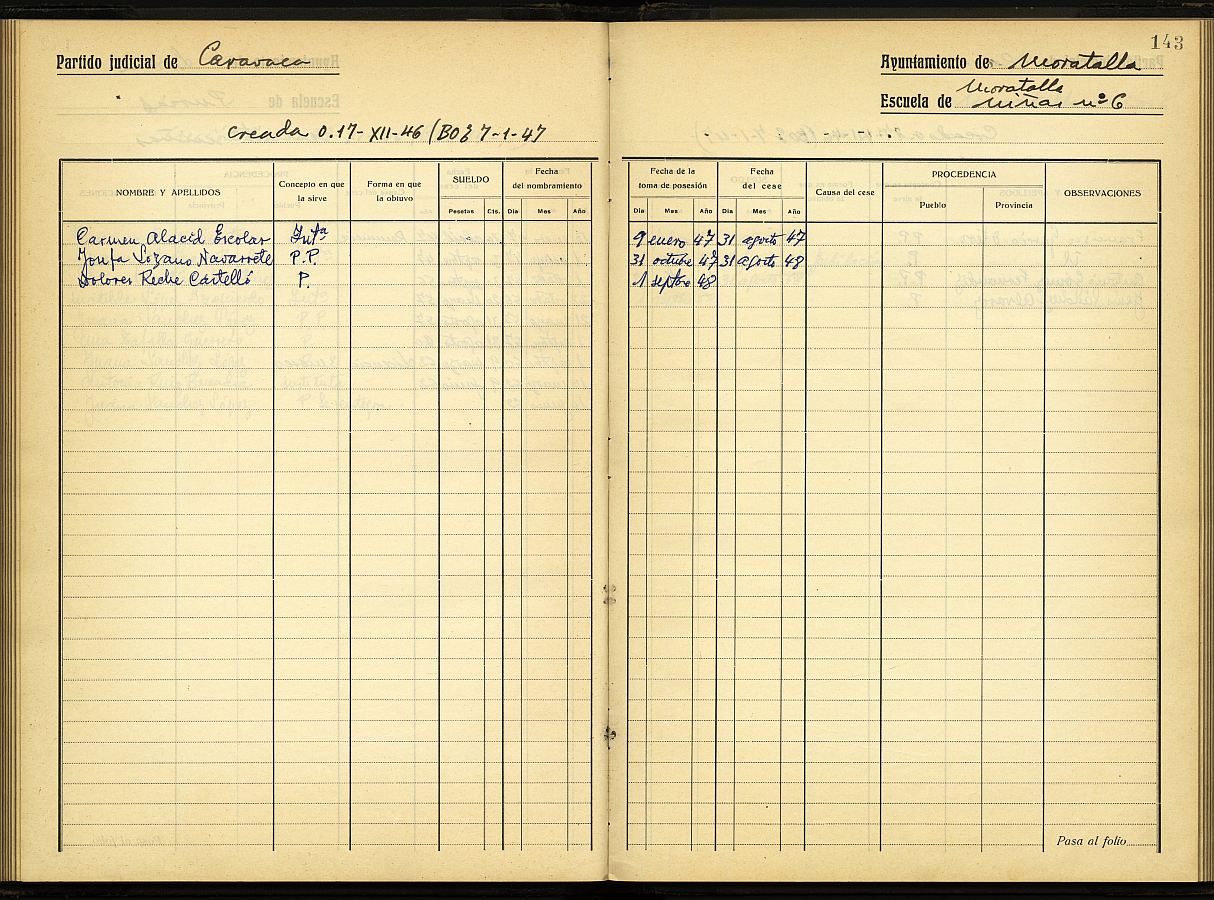 143
Partido judicial de Caravaca
Ayuntamiento de Moratalla
Escuela de Moratalla Niñas nº 6
Creada O. 17-XII-46 (BOE 7-1-47
NOMBRE Y APELLIDOS
Concepto en que la sirve
Forma en que la obtuvo
SUELDO
Pesetas Cts.
Fecha del nombramiento
Dia Mes Año
Fecha de la toma de posesión
Dia Mes Año
Fecha del cese
Dia Mes Año
Causa del cese
PROCEDENCIA
Pueblo Provincia
OBSERVACIONES
Carmen Alacid Escolar Intª 9 enero 47 31 agosto 47
Josefa Lozano Navarrete P.P. 31 octubre 47 31 agosto 48
Dolores Reche Castelló P. 1 septbre 48
Pasa al folio